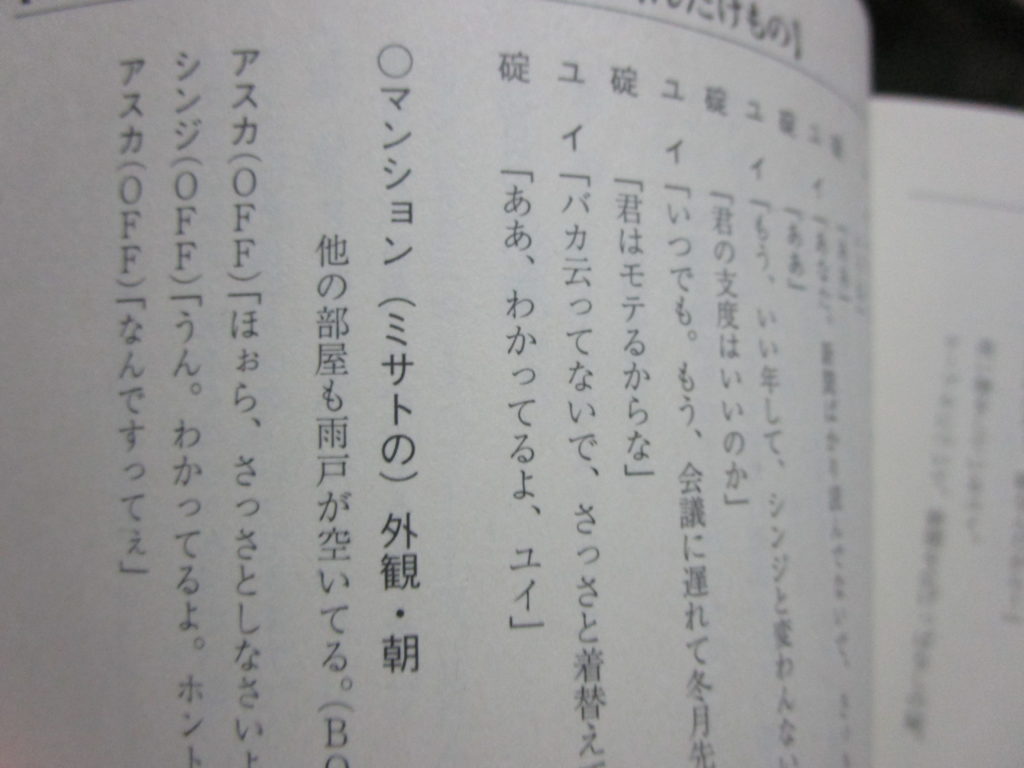 けもの】
碇
ユイ「あなた。新聞ばかり読んでないで、
碇「ああ」
ユイ「もう、いい年して、シンジと変わんない
碇「君の支度はいいのか」
ユイ「いつでも。もう、会議に遅れて冬月先
碇「君はモテるからな」
ユイ「バカ云ってないで、さっさと着替えて
碇「ああ、わかってるよ、ユイ」
○マンション（ミサトの）外観・朝
他の部屋も雨戸が空いてる。（BG
アスカ（OFF）「ほぉら、さっさとしなさいよ
シンジ（OFF）「うん。わかってるよ。ホント
アスカ（OFF）「なんですってぇ」